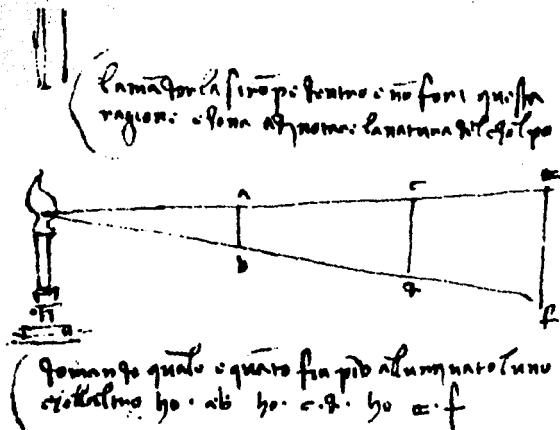 la mādorla si rōpe dentro e nō fori questa
ragione e bona a dinotare la natura del cholpo
a c e
b d f
domando quale e quāto fia più alluminato luno
che llaltro ho · ab ho · c · d · ho e · f